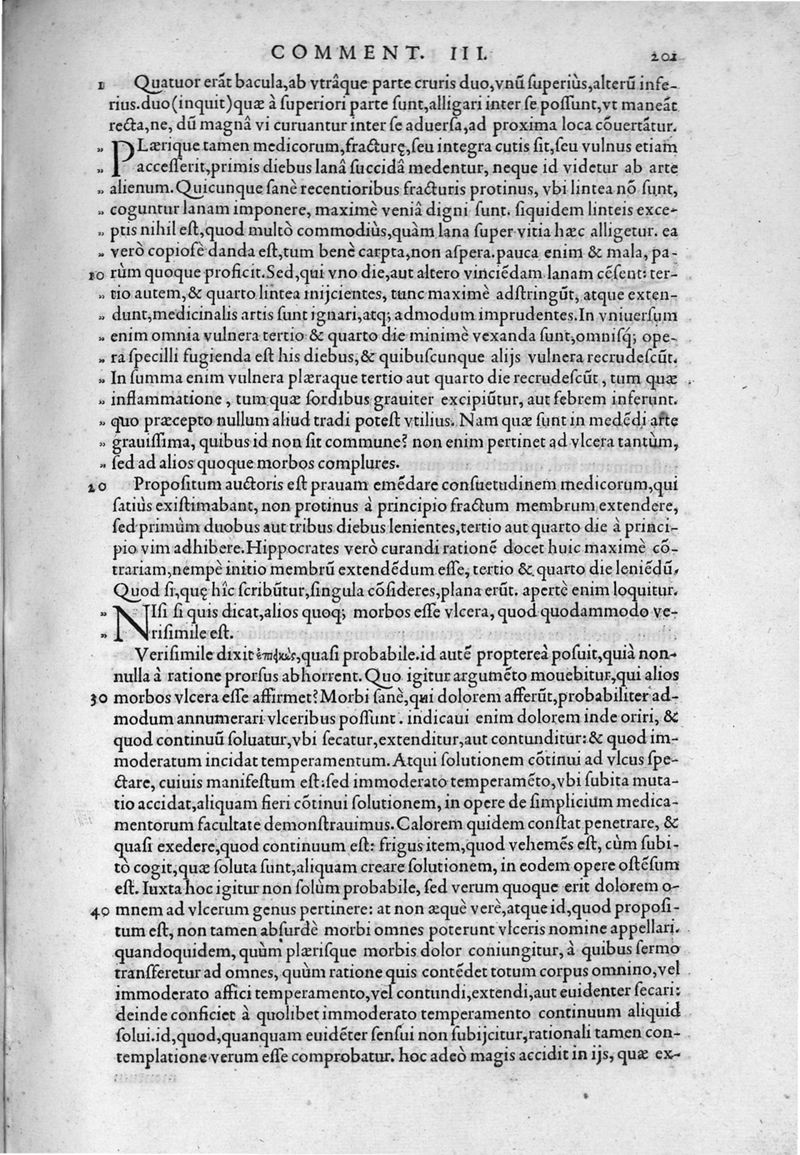 COMMENT. III. 201
1 Quatuor erāt bacula,ab vtrâque parte cruris duo,vnū ſuperiùs,alterū infe-
rius.duo(inquit)quæ à ſuperiori parte ſunt,alligari inter ſe poſſunt,vt maneāt
recta,ne, dū magnâ vi curuantur inter ſe aduerſa,ad proxima loca cōuertātur.
„ PLærique tamen medicorum,fracturę,ſeu integra cutis ſit,ſeu vulnus etiam
„ acceſſerit,primis diebus lanâ ſuccidâ medentur, neque id videtur ab arte
„ alienum.Quicunque ſanè recentioribus fracturis protinus, vbi lintea nō ſunt,
„ coguntur lanam imponere, maximè veniâ digni ſunt. ſiquidem linteis exce-
„ ptis nihil eſt,quod multò commodiùs,quàm lana ſuper vitia hæc alligetur. ea
„ verò copioſè danda eſt,tum benè carpta,non aſpera.pauca enim & mala, pa-
10 rùm quoque proficit.Sed,qui vno die,aut altero vinciēdam lanam cēſent: ter-
„ tio autem,& quarto lintea inijcientes, tunc maximè adſtringūt, atque exten-
„ dunt,medicinalis artis ſunt ignari,atq; admodum imprudentes.In vniuerſum
„ enim omnia vulnera tertio & quarto die minimè vexanda ſunt,omniſq́; ope-
„ ra ſpecilli fugienda eſt his diebus,& quibuſcunque alijs vulnera recrudeſcūt.
„ In ſumma enim vulnera plæraque tertio aut quarto die recrudeſcūt, tum quæ
„ inflammatione, tum quæ ſordibus grauiter excipiūtur, aut febrem inferunt.
„ quo præcepto nullum aliud tradi poteſt vtilius. Nam quæ ſunt in medēdi arte
„ grauiſſima, quibus id non ſit commune? non enim pertinet ad vlcera tantùm,
„ ſed ad alios quoque morbos complures.
20 Propoſitum auctoris eſt prauam emēdare conſuetudinem medicorum,qui
ſatiùs exiſtimabant, non protinus à principio fractum membrum extendere,
ſed primùm duobus aut tribus diebus lenientes,tertio aut quarto die à princi-
pio vim adhibere.Hippocrates verò curandi rationē docet huic maximè cō-
trariam,nempè initio membrū extendēdum eſſe, tertio & quarto die leniēdū.
Quod ſi,quę hîc ſcribūtur,ſingula cōſideres,plana erūt. apertè enim loquitur.
„ NIſi ſi quis dicat,alios quoq; morbos eſſe vlcera, quod quodammodo ve-
„ riſimile eſt.
Veriſimile dixit ἐπιεικῶς,quaſi probabile.id autē proptereà poſuit,quià non-
nulla à ratione prorſus abhorrent. Quo igitur argumēto mouebitur,qui alios
30 morbos vlcera eſſe affirmet? Morbi ſanè,qui dolorem afferūt,probabiliter ad-
modum annumerari vlceribus poſſunt. indicaui enim dolorem inde oriri, &
quod continuū ſoluatur,vbi ſecatur,extenditur,aut contunditur:& quod im-
moderatum incidat temperamentum. Atqui ſolutionem cōtinui ad vlcus ſpe-
ctare, cuiuis manifeſtum eſt:ſed immoderato temperamēto,vbi ſubita muta-
tio accidat,aliquam fieri cōtinui ſolutionem, in opere de ſimplicium medica-
mentorum facultate demonſtrauimus.Calorem quidem conſtat penetrare, &
quaſi exedere,quod continuum eſt: frigus item,quod vehemēs eſt, cùm ſubi-
tò cogit,quæ ſoluta ſunt,aliquam creare ſolutionem, in eodem opere oſtēſum
eſt. Iuxta hoc igitur non ſolùm probabile, ſed verum quoque erit dolorem o-
40 mnem ad vlcerum genus pertinere: at non æquè verè,atque id,quod propoſi-
tum eſt, non tamen abſurdè morbi omnes poterunt vlceris nomine appellari.
quandoquidem, quùm plæriſque morbis dolor coniungitur, à quibus ſermo
tranſferetur ad omnes, quùm ratione quis contēdet totum corpus omnino,vel
immoderato affici temperamento,vel contundi,extendi,aut euidenter ſecari:
deinde conficiet à quolibet immoderato temperamento continuum aliquid
ſolui.id,quod,quanquam euidēter ſenſui non ſubijcitur,rationali tamen con-
templatione verum eſſe comprobatur. hoc adeò magis accidit in ijs, quæ ex-